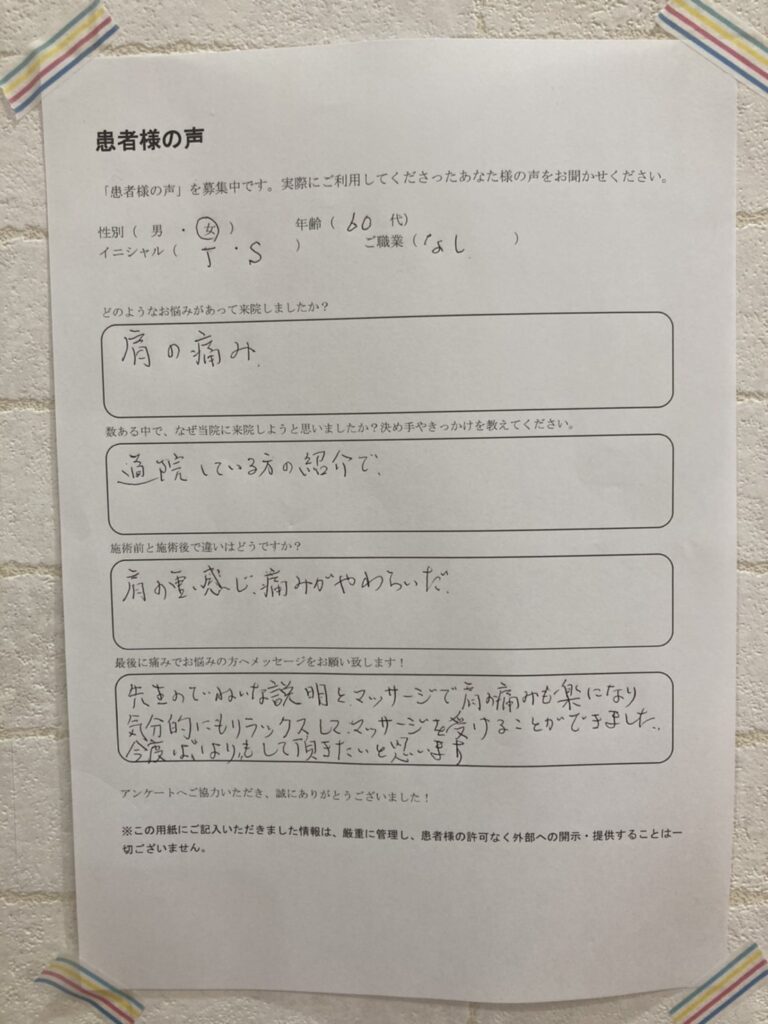 患者様の声
「患者様の声」を募集中です。実際にご利用してくださったあなた様の声をお聞かせください。
性別（ 男 ・ 女 ） 年齢（ 60 代）
イニシャル（ T・S ） ご職業（なし ）
どのようなお悩みがあって来院しましたか？
肩の痛み.
数ある中で、なぜ当院に来院しようと思いましたか？決め手やきっかけを教えてください。
通院している方の紹介で.
施術前と施術後で違いはどうですか？
肩の重い感じ、痛みがやわらいだ.
最後に痛みでお悩みの方へメッセージをお願い致します！
先生のていねいな説明とマッサージで肩の痛みも楽になり
気分的にもリラックスして、マッサージを受けることができました.
今度は“はり”もして頂きたいと思います
アンケートへご協力いただき、誠にありがとうございました！
※この用紙にご記入いただきました情報は、厳重に管理し、患者様の許可なく外部への開示・提供することは一
切ございません。